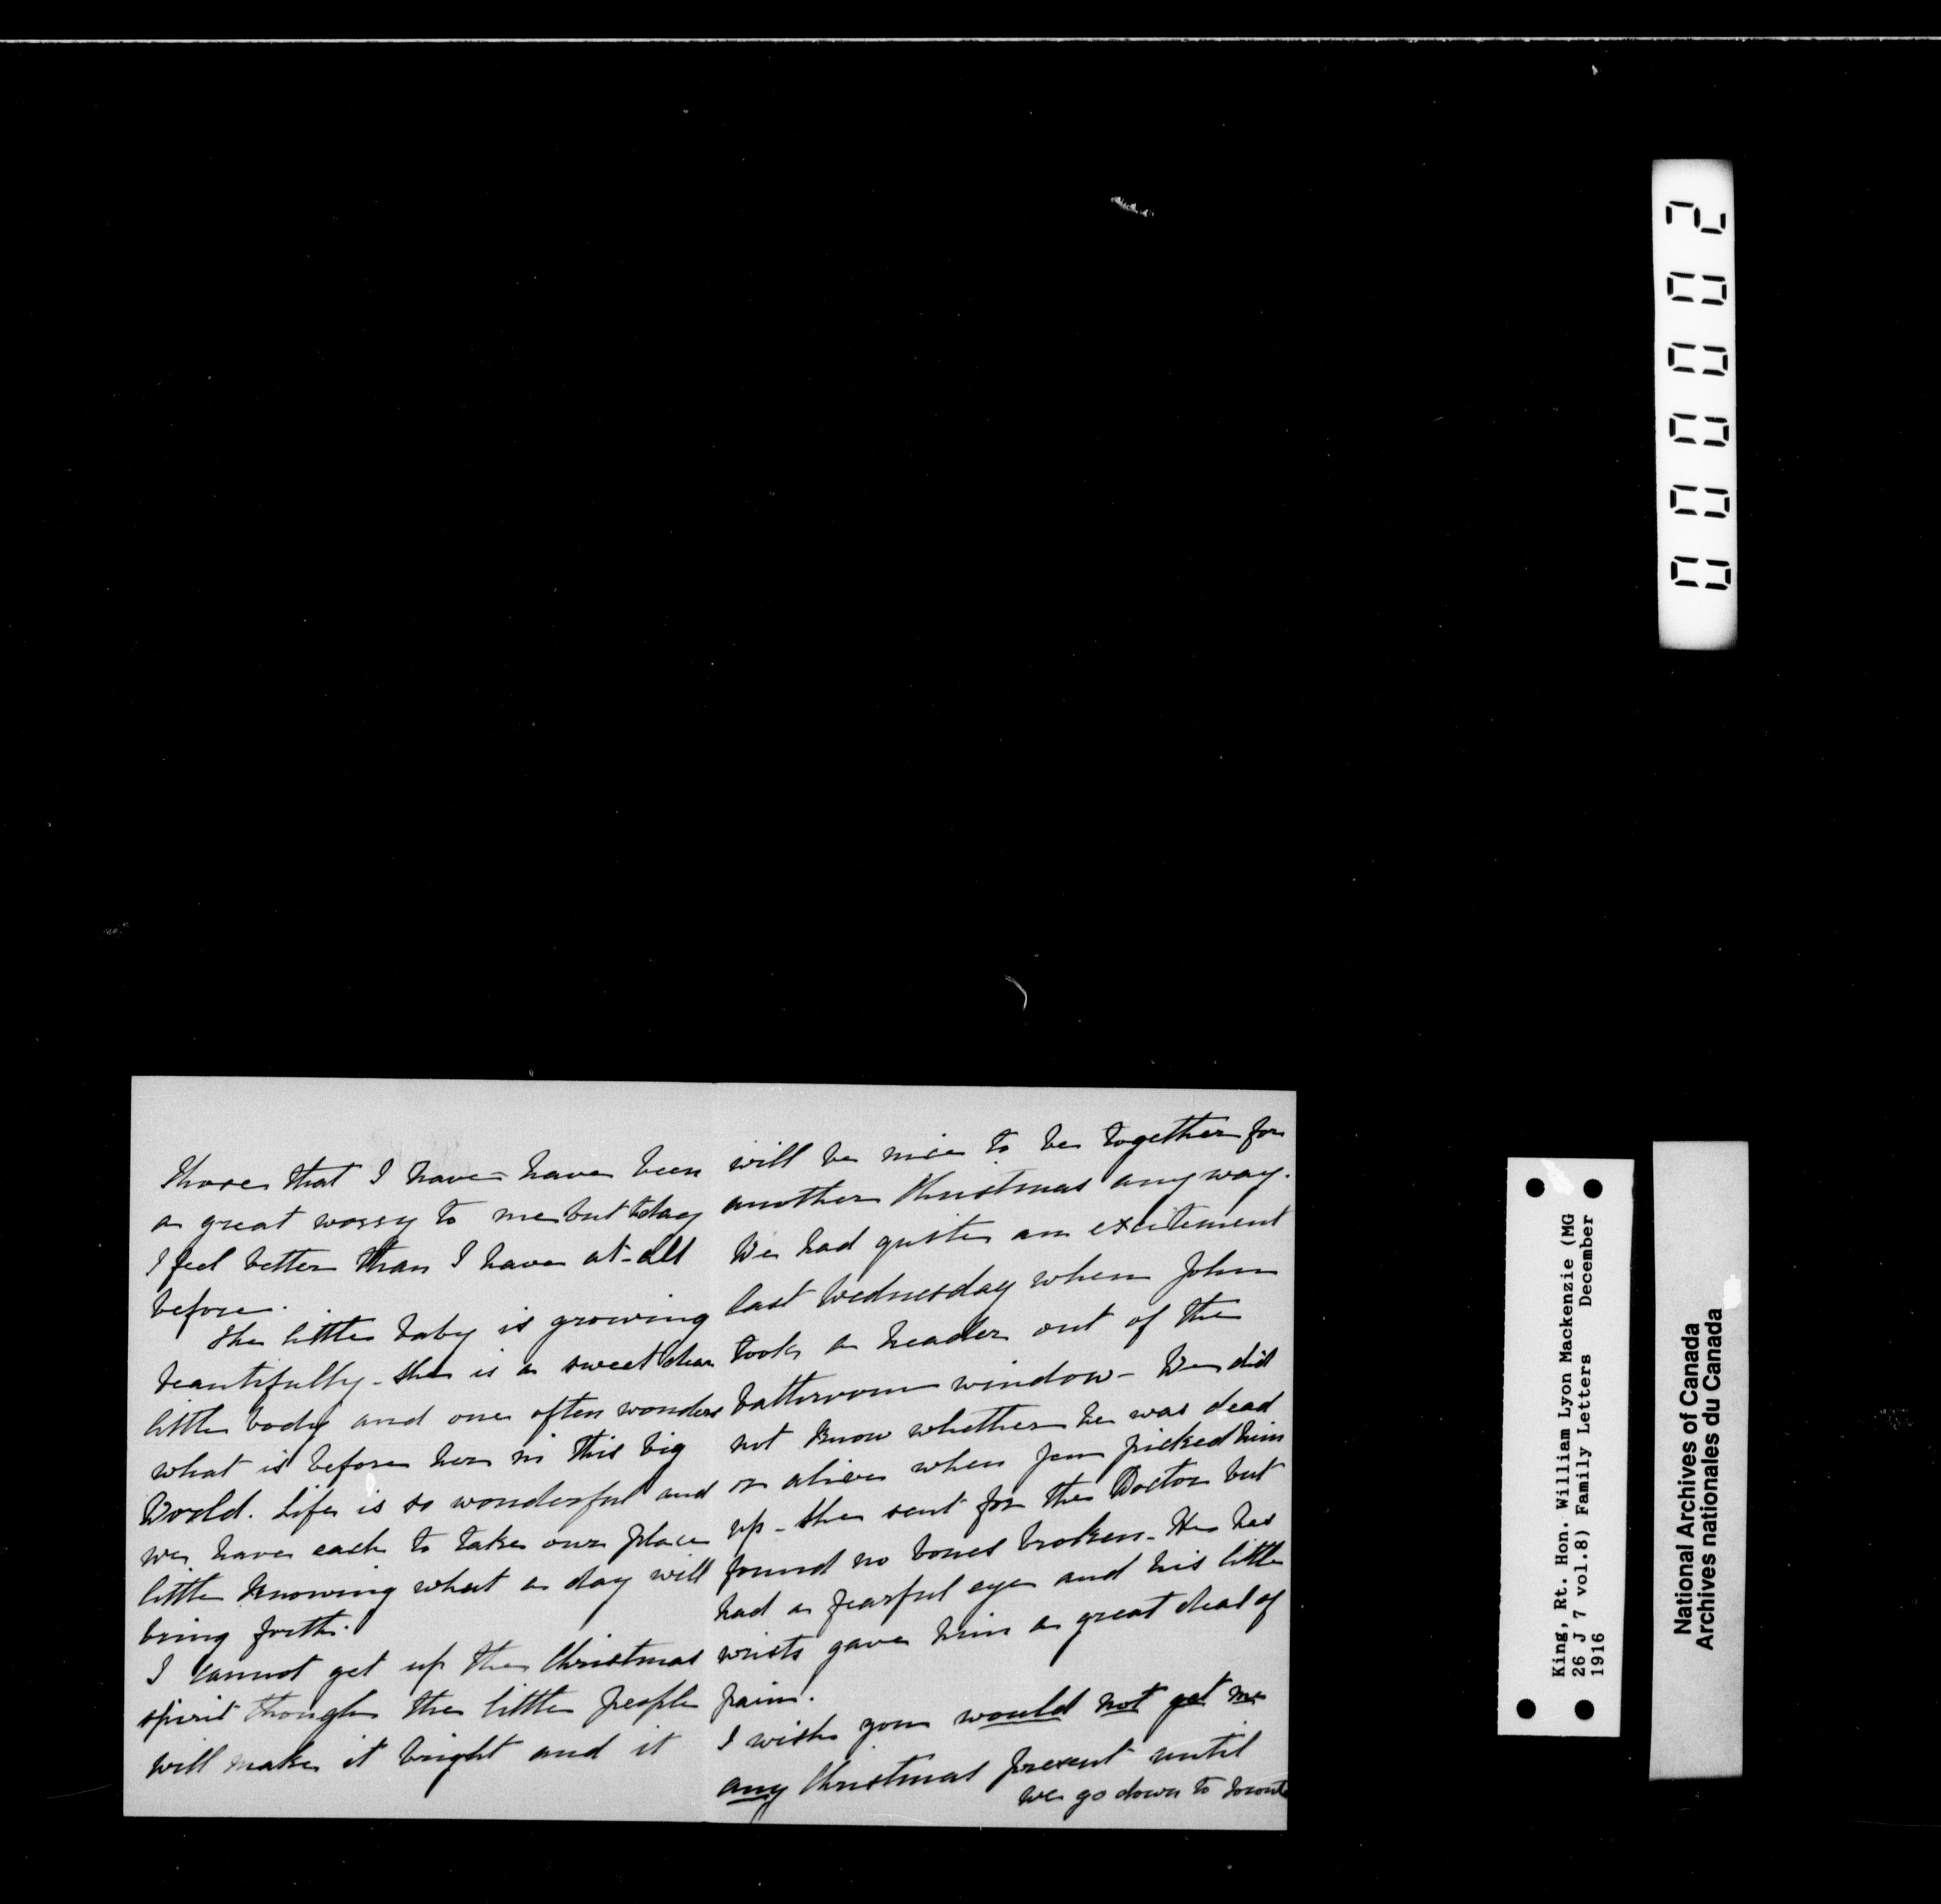 those that I have - have been
a great worry to me but today
I feel better than I have at-all
before.
The little baby is growing
beautifully - she is a sweet dear
little body and one often wonders
what is before her in this big
World. Life is so wonderful and
we have each to take our place
little knowing what a day will
bring forth.
I cannot get up the Christmas
spirit though the little people
will make it bright and it
will be nice to be together for
another Christmas anyway.
We had quite an excitement
last Wednesday when John
took a header out of the
bathroom window - We did
not know whether he was dead
or alive when Jen picked him
up - She sent for the Doctor but
found no bones broken - He has
had a fearful eye and his little
wrists gave him a great deal of
pain.
I wish you would not get me
any Christmas present until
we go down to Toronto
000002
King, Rt. Hon. William Lyon Mackenzie (MG
26 J 7 vol.8) Family Letters December
1916
National Archives of Canada
Archives nationales du Canada